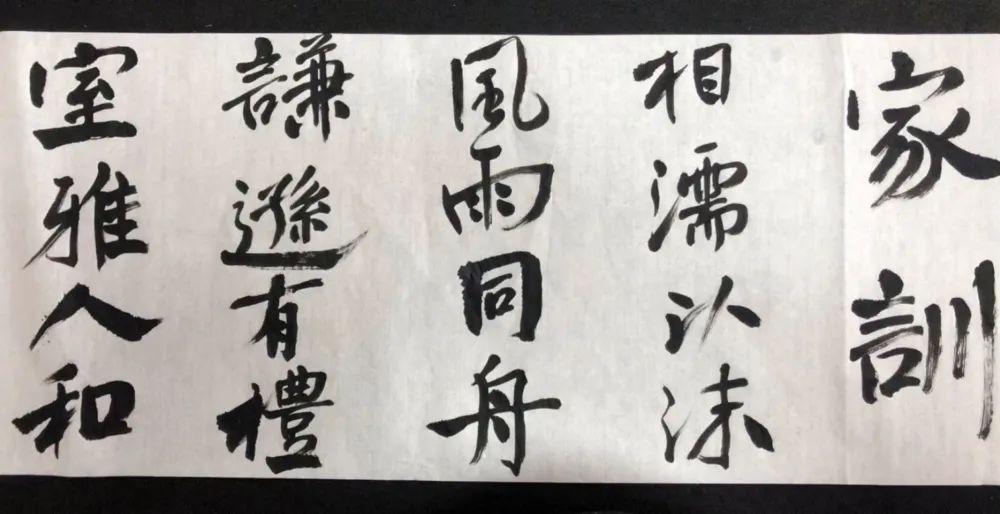 家訓
相濡以沫
風雨同舟
謙遜有禮
室雅人和